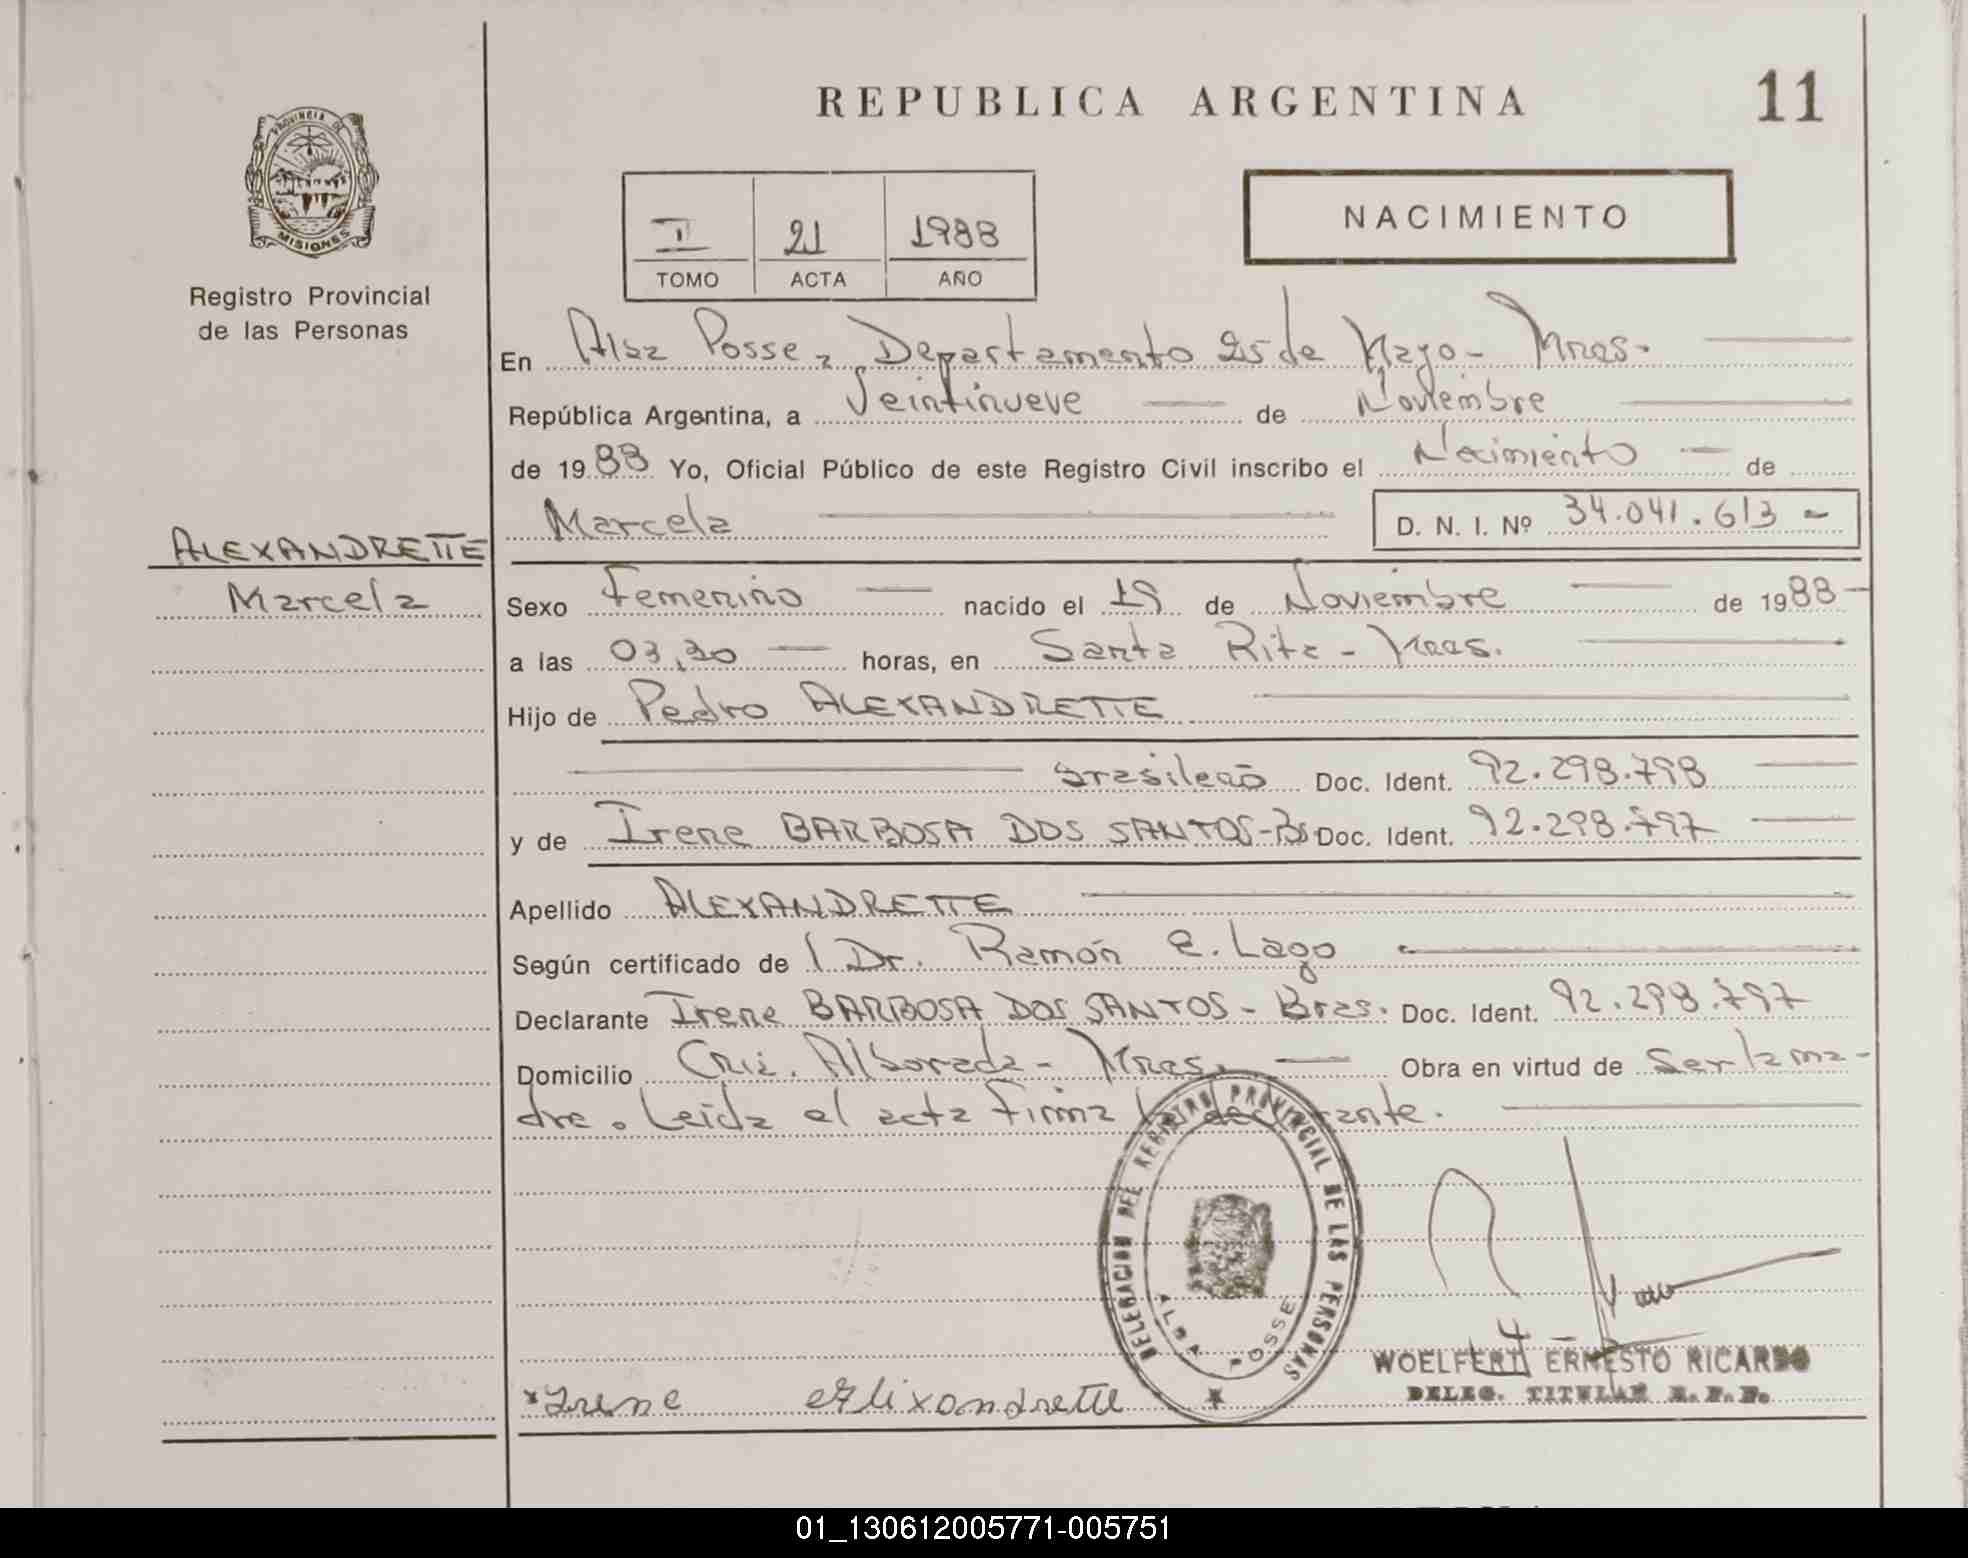 REPUBLICA ARGENTINA
11
PROVINCIA DE
MISIONES
Registro Provincial
de las Personas
II 21 1988
TOMO ACTA AÑO
NACIMIENTO
En Alba Posse, Departamento 25 de Mayo - Mnes.
República Argentina, a Veintinueve de Noviembre
de 1988 Yo, Oficial Público de este Registro Civil inscribo el Nacimiento de
Marcela D. N. I. Nº 34.041.613
ALEXANDRETTE
Marcela
Sexo Femenino nacido el 19 de Noviembre de 1988
a las 03,30 horas, en Santa Rita - Mnes.
Hijo de Pedro ALEXANDRETTE
brasileño Doc. Ident. 92.298.798
y de Irene BARBOSA DOS SANTOS - Bs. Doc. Ident. 92.298.797
Apellido ALEXANDRETTE
Según certificado de Dr. Ramón E. Lago
Declarante Irene BARBOSA DOS SANTOS - Bras. Doc. Ident. 92.298.797
Domicilio Alborada - Mnes. Obra en virtud de Ser la ma-
dre. Leída el acta firma la declarante.
DELEGACION DEL REGISTRO PROVINCIAL DE LAS PERSONAS
ALBA POSSE
WOELFERT ERNESTO RICARDO
DELEG. TITULAR R. P. P.
Irene Alixandrette
01_130612005771-005751